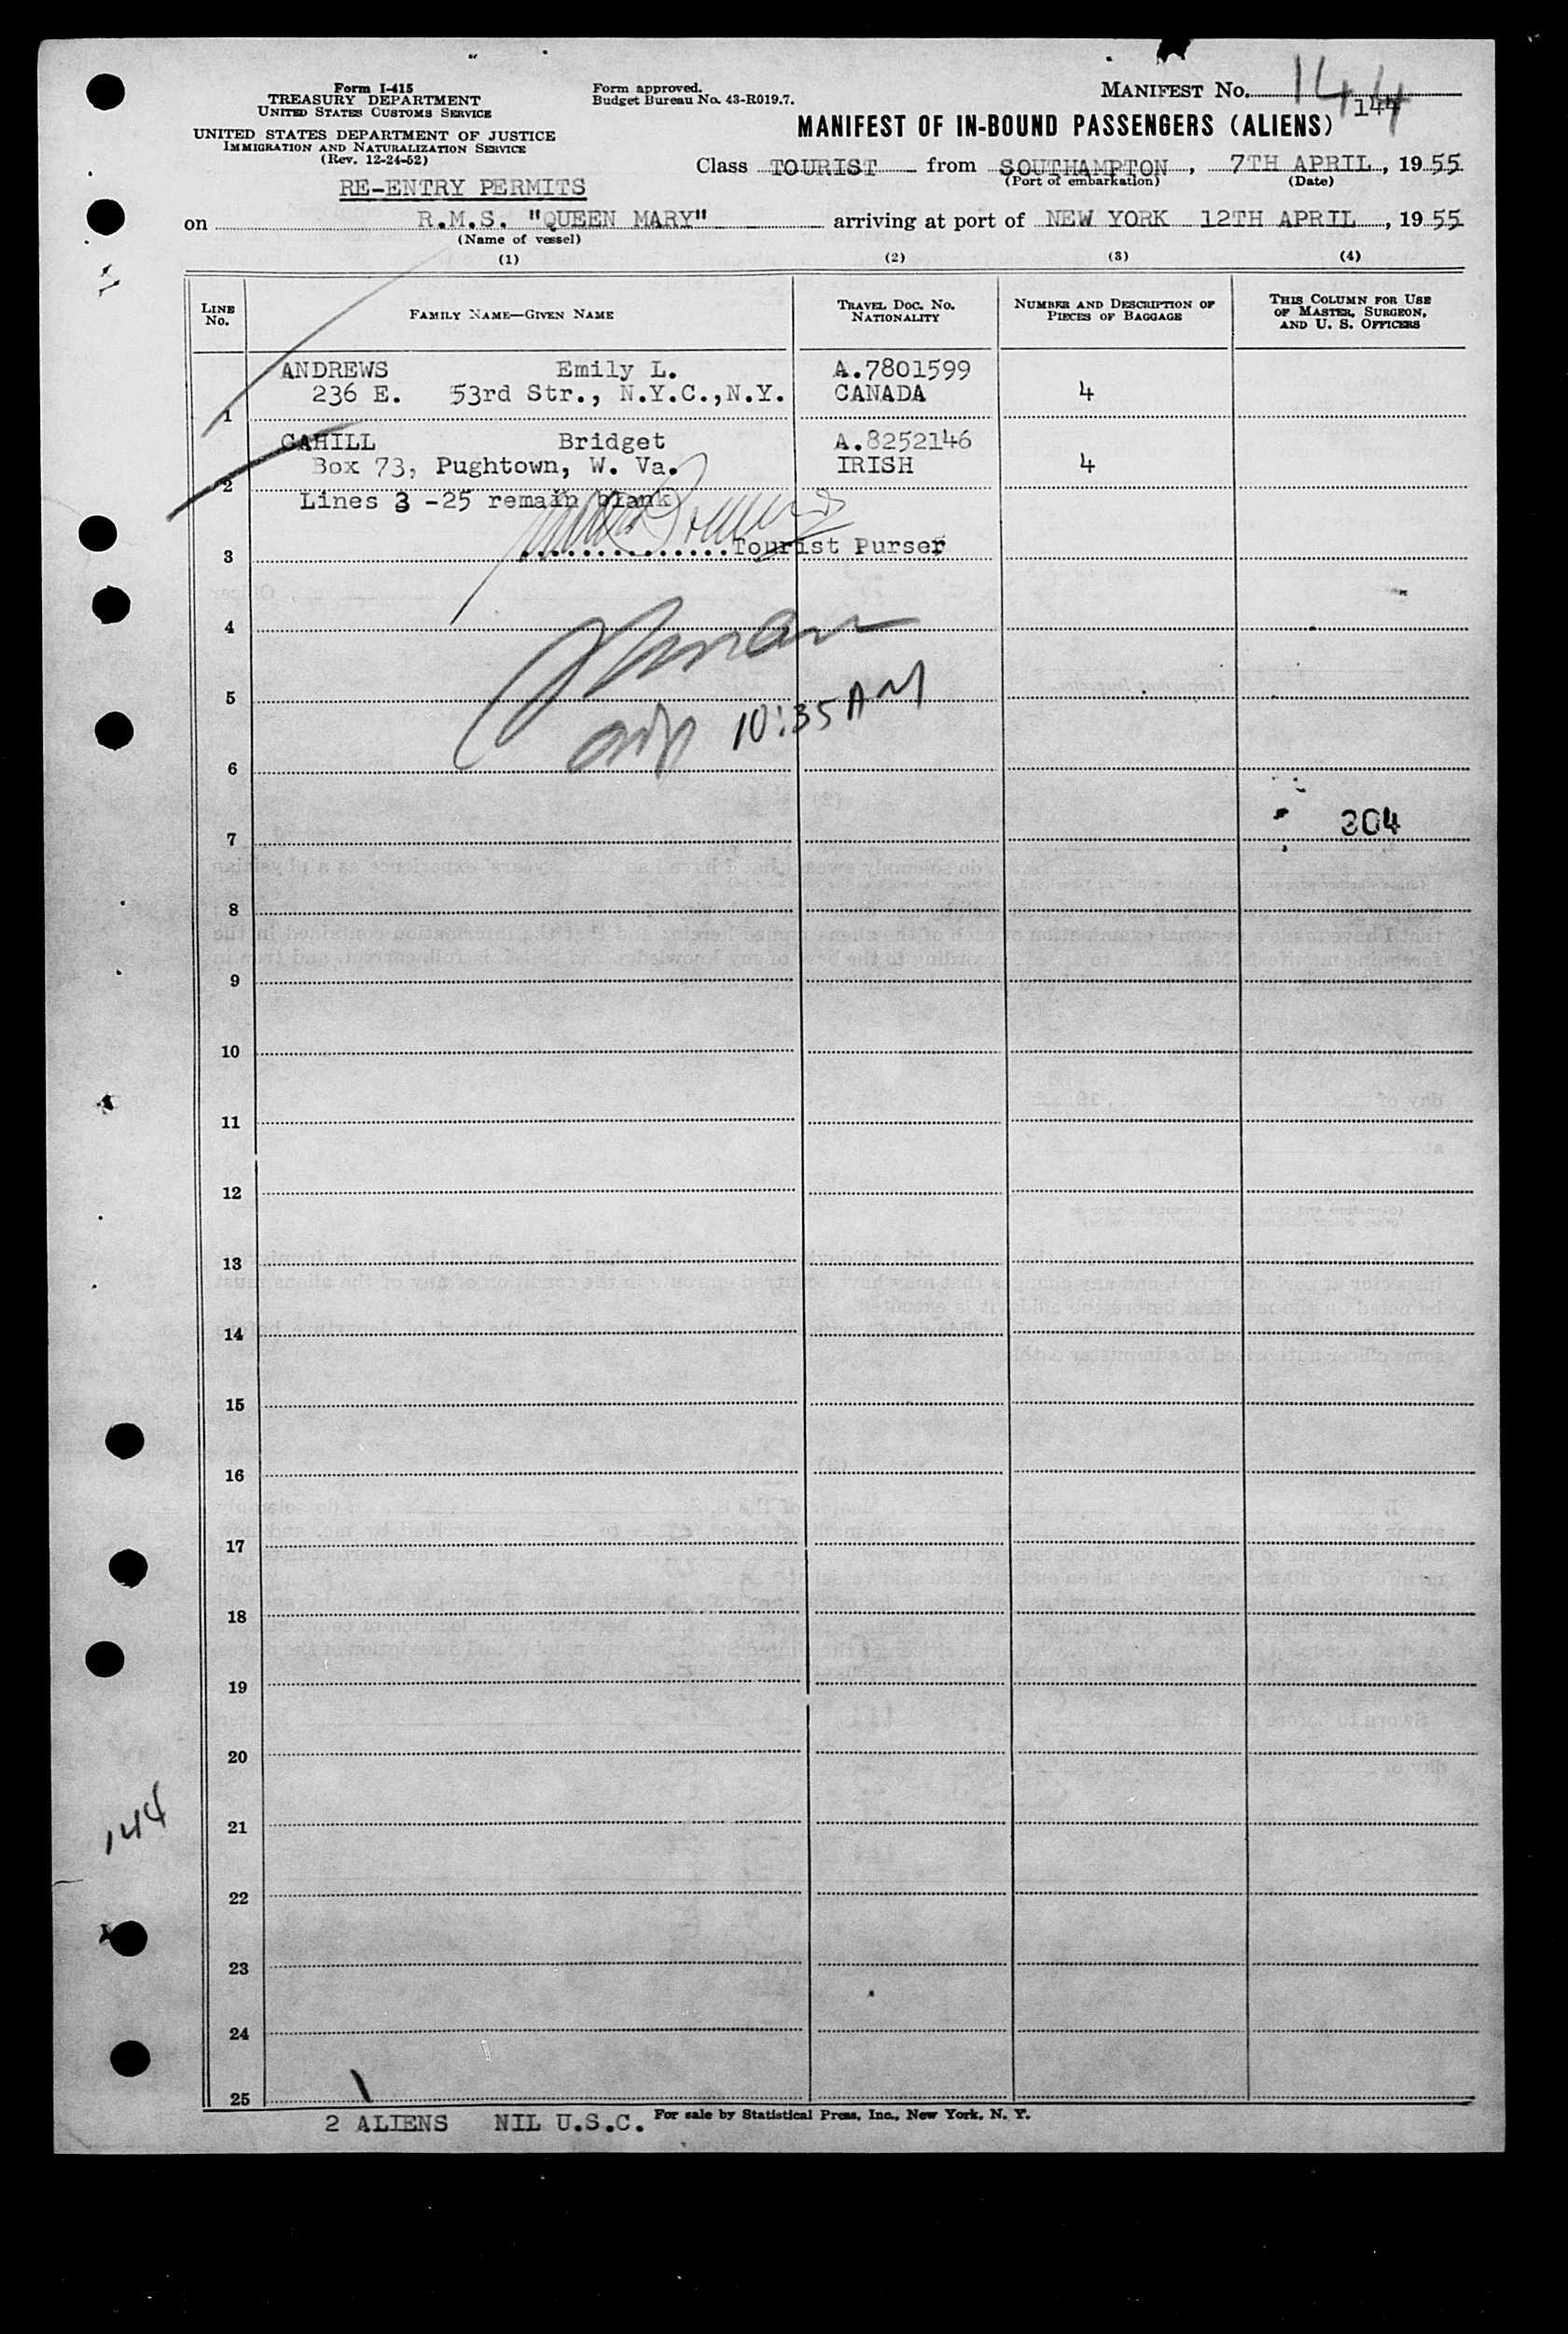 Form I-415
TREASURY DEPARTMENT
UNITED STATES CUSTOMS SERVICE
UNITED STATES DEPARTMENT OF JUSTICE
IMMIGRATION AND NATURALIZATION SERVICE
(Rev. 12-24-52)
Form approved.
Budget Bureau No. 43-R019.7.
MANIFEST No. 144
144
MANIFEST OF IN-BOUND PASSENGERS (ALIENS)
Class TOURIST from SOUTHAMPTON, 7TH APRIL, 1955
(Port of embarkation) (Date)
RE-ENTRY PERMITS
on R.M.S. "QUEEN MARY" arriving at port of NEW YORK 12TH APRIL, 1955
(Name of vessel)
(1) (2) (3) (4)
LINE No. FAMILY NAME—GIVEN NAME TRAVEL DOC. No. NATIONALITY NUMBER AND DESCRIPTION OF PIECES OF BAGGAGE THIS COLUMN FOR USE OF MASTER, SURGEON, AND U. S. OFFICERS
ANDREWS Emily L. A.7801599
1 236 E. 53rd Str., N.Y.C.,N.Y. CANADA 4
CAHILL Bridget A.8252146
2 Box 73, Pughtown, W. Va. IRISH 4
Lines 3 -25 remain blank
3 ..............Tourist Purser
4
5
10:35 AM
6
304
7
8
9
10
11
12
13
14
15
16
17
18
19
20
144
21
22
23
24
25
2 ALIENS NIL U.S.C. For sale by Statistical Press, Inc., New York, N. Y.